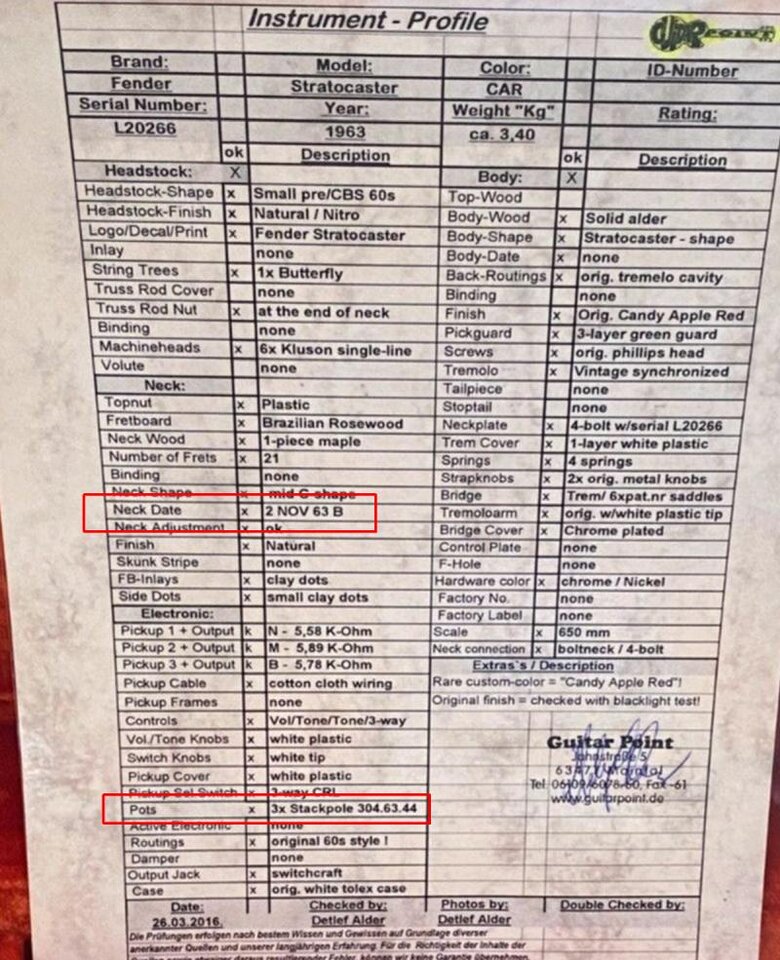 Instrument - Profile
POINT
Brand: Model: Color: ID-Number
Fender Stratocaster CAR
Serial Number: Year: Weight "Kg" Rating:
L20266 1963 ca. 3,40
ok Description ok Description
Headstock: X Body: X
Headstock-Shape x Small pre/CBS 60s Top-Wood
Headstock-Finish x Natural / Nitro Body-Wood x Solid alder
Logo/Decal/Print x Fender Stratocaster Body-Shape x Stratocaster - shape
Inlay none Body-Date x none
String Trees x 1x Butterfly Back-Routings x orig. tremelo cavity
Truss Rod Cover none Binding none
Truss Rod Nut x at the end of neck Finish x Orig. Candy Apple Red
Binding none Pickguard x 3-layer green guard
Machineheads x 6x Kluson single-line Screws x orig. phillips head
Volute none Tremolo x Vintage synchronized
Neck: Tailpiece none
Topnut x Plastic Stoptail none
Fretboard x Brazilian Rosewood Neckplate x 4-bolt w/serial L20266
Neck Wood x 1-piece maple Trem Cover x 1-layer white plastic
Number of Frets x 21 Springs x 4 springs
Binding none Strapknobs x 2x orig. metal knobs
Neck Shape x mid C shape Bridge x Trem/ 6xpat.nr saddles
Neck Date x 2 NOV 63 B Tremoloarm x orig. w/white plastic tip
Neck Adjustment x ok Bridge Cover x Chrome plated
Finish x Natural Control Plate none
Skunk Stripe none F-Hole none
FB-Inlays x clay dots Hardware color x chrome / Nickel
Side Dots x small clay dots Factory No. none
Electronic: Factory Label none
Pickup 1 + Output k N - 5,58 K-Ohm Scale x 650 mm
Pickup 2 + Output k M - 5,89 K-Ohm Neck connection x boltneck / 4-bolt
Pickup 3 + Output k B - 5,78 K-Ohm Extras`s / Description
Pickup Cable x cotton cloth wiring Rare custom-color = "Candy Apple Red"!
Pickup Frames none Original finish = checked with blacklight test!
Controls x Vol/Tone/Tone/3-way
Vol./Tone Knobs x white plastic Guitar Point
Switch Knobs x white tip Johnstraße 5
Pickup Cover x white plastic 63477 Maintal
Pickup Sel.Switch x 3-way CRL Tel. 06109/6078-60, Fax -61
Pots x 3x Stackpole 304.63.44 www.guitarpoint.de
Active Electronic none
Routings x original 60s style !
Damper none
Output Jack x switchcraft
Case x orig. white tolex case
Date: Checked by: Photos by: Double Checked by:
26.03.2016. Detlef Alder Detlef Alder
Die Prüfungen erfolgen nach bestem Wissen und Gewissen auf Grundlage diverser
anerkannter Quellen und unserer langjährigen Erfahrung. Für die Richtigkeit der Inhalte der
können wir keine Garantie übernehmen.